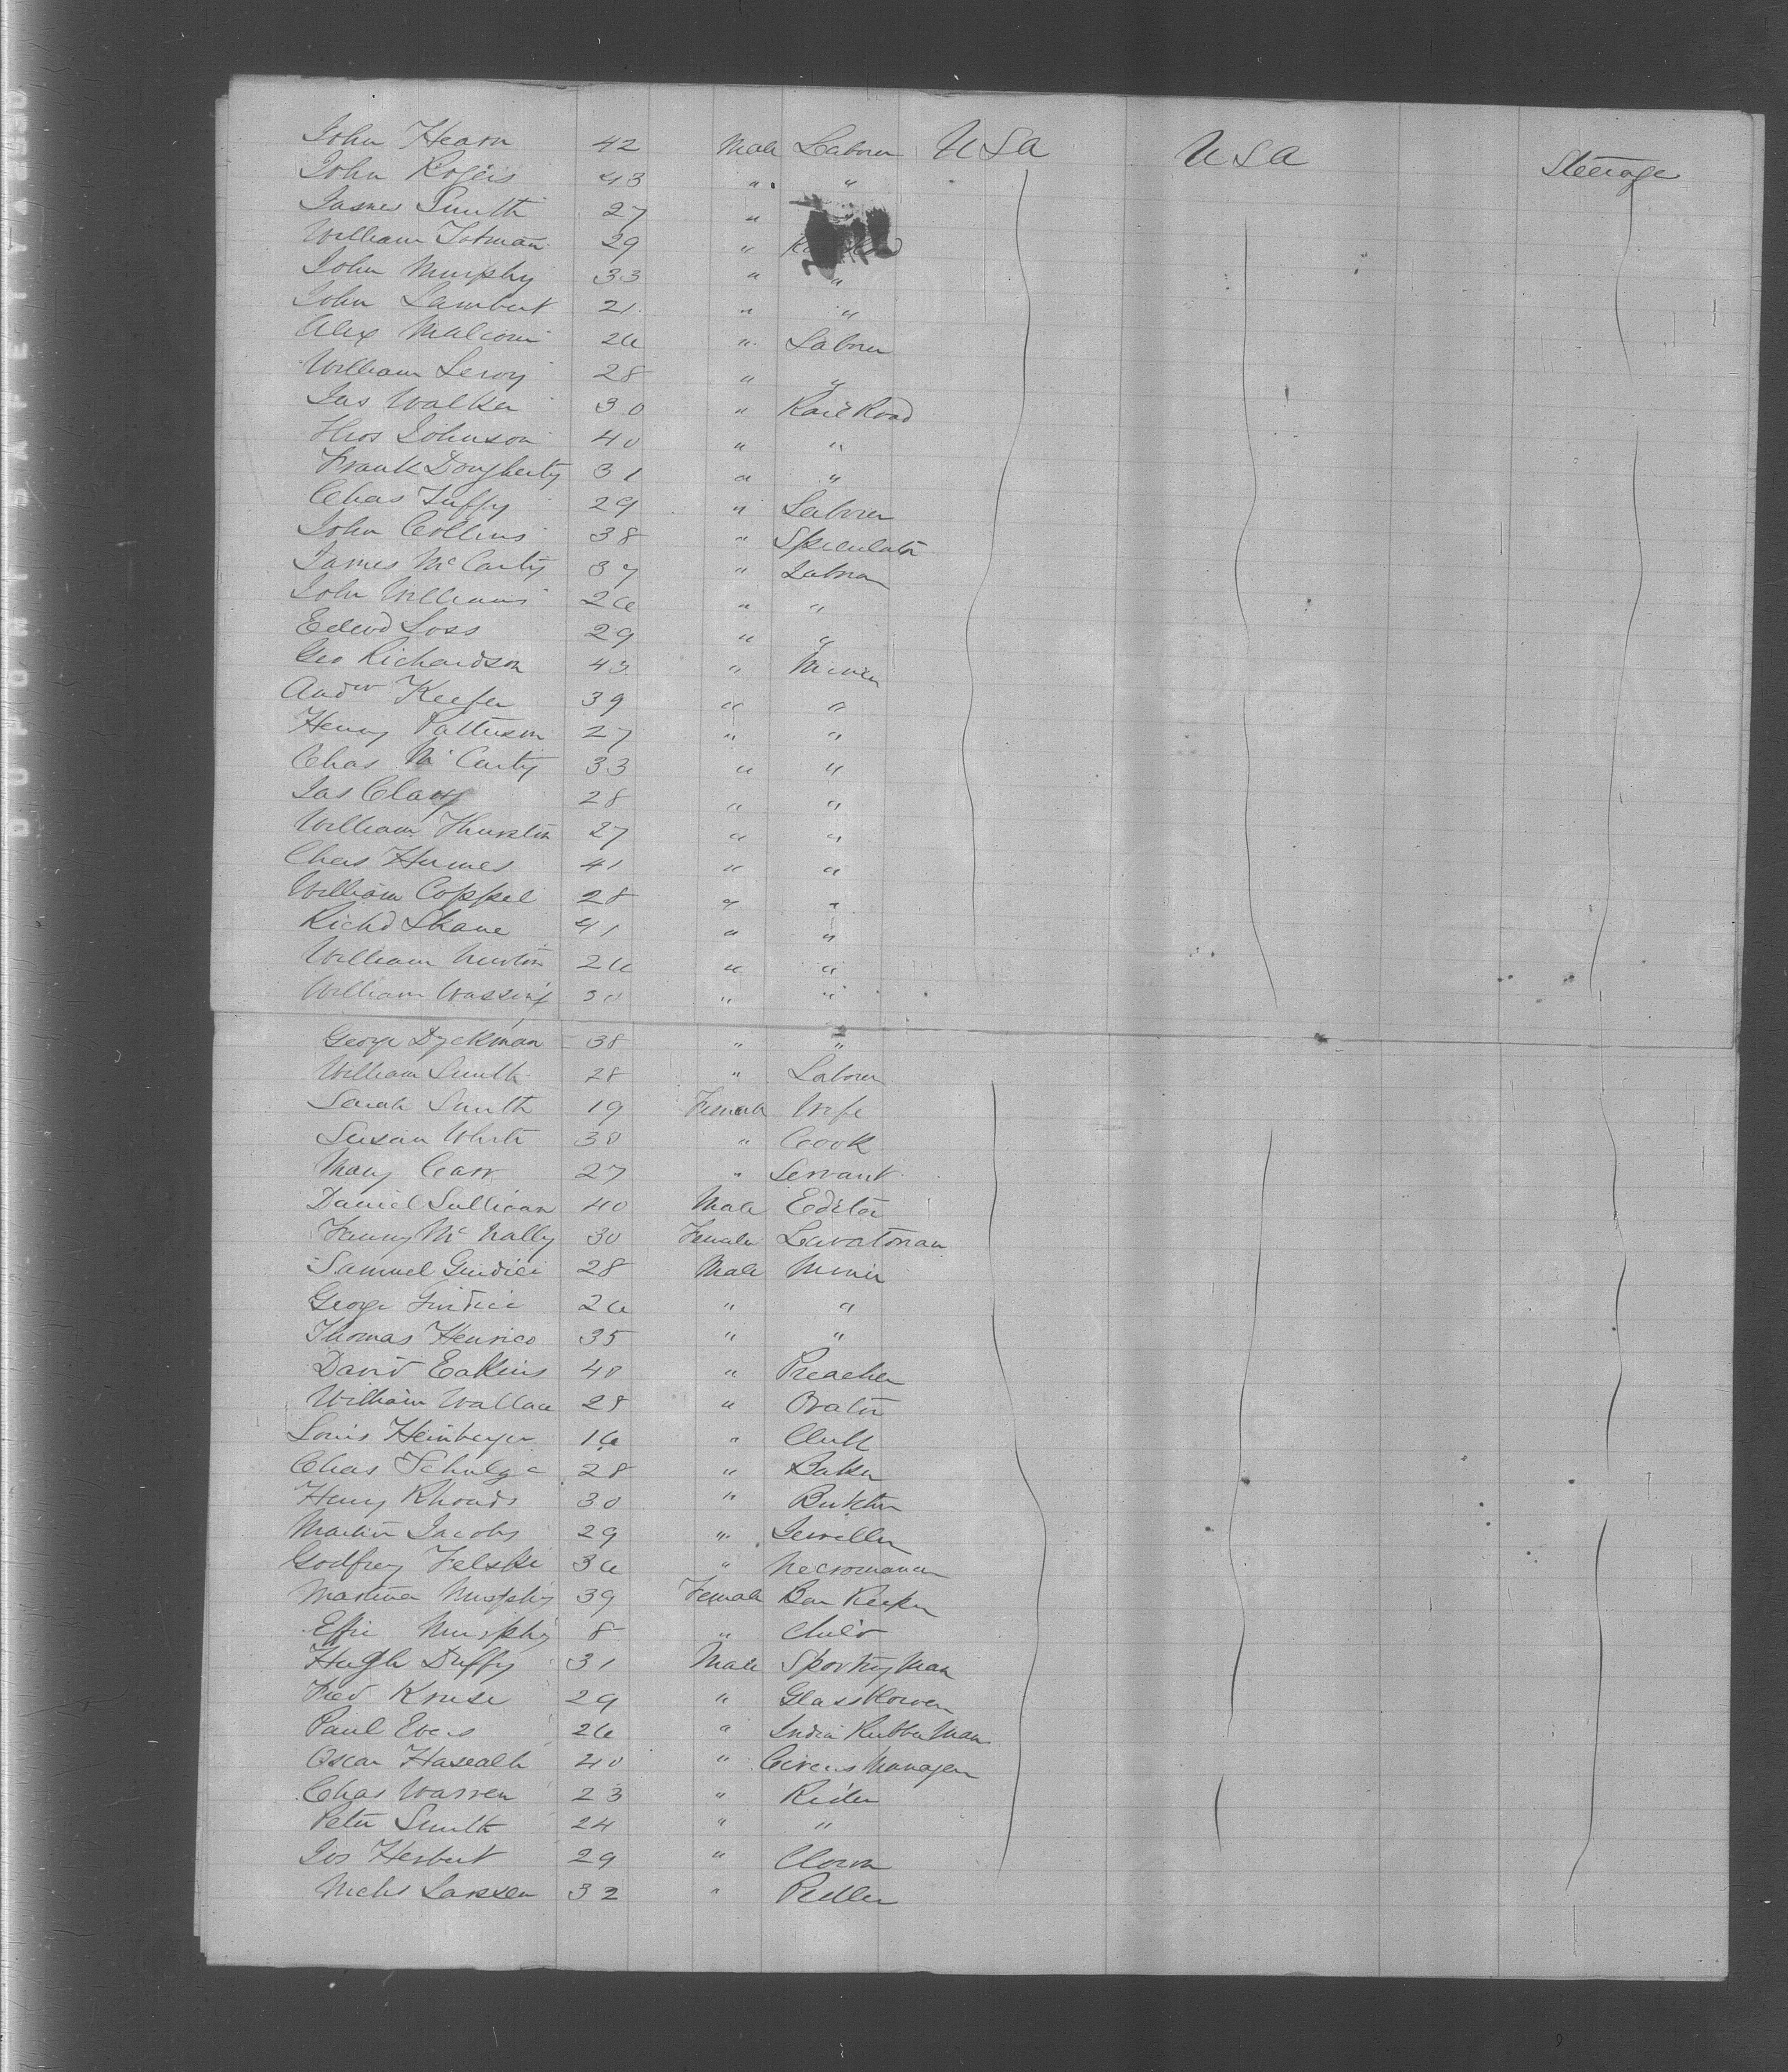 John Hearn 42 Male Laborer USA USA Steerage
John Rogers 43 " "
James Smith 27 "
William Totman 29 "
John Murphy 33 " "
John Lambert 21 " "
Alex Malcom 26 " Laborer
William Leroy 28 " "
Jas Walker 30 " Rail Road
Thos Johnson 40 " "
Frank Dougherty 31 " "
Chas Tuffy 29 " Laborer
John Collins 38 " Speculator
James McCarty 37 " Laborer
John Williams 26 " "
Edwd Loss 29 " "
Geo Richardson 43 " Miner
Andw Keefer 39 " "
Henry Patterson 27 " "
Chas McCarty 33 " "
Jas Clary 28 " "
William Thurston 27 " "
Chas Hermes 41 " "
William Coppel 28 " "
Richd Shane 41 " "
William Newton 26 " "
William Wassing 30 " "
George Dyckman 38 " "
William Smith 28 " Laborer
Sarah Smith 19 Female Wife
Susan White 38 " Cook
Mary Carr 27 " Servant
Daniel Sullivan 40 Male Editor
Fanny McNally 30 Female
Samuel Giudici 28 Male Miner
George Giudici 26 " "
Thomas Henrico 35 " "
David Eakins 40 " Preacher
William Wallace 28 " Orator
Louis Heinberger 16 " Clerk
Chas Schulze 28 " Baker
Henry Rhoads 30 " Butcher
Martin Jacobs 29 " Jeweller
Godfrey Felski 36 " Necromancer
Martina Murphy 39 Female Bar Keeper
Effie Murphy 8 " Child
Hugh Duffy 31 Male Sporting Man
Fred Kruse 29 " Glassblower
Paul Evers 26 " India Rubber Man
Oscar 40 " Circus Manager
Chas Warren 23 " Rider
Peter Smith 24 " "
Jos Herbert 29 " Clown
Nichs Larssen 32 " Pedler